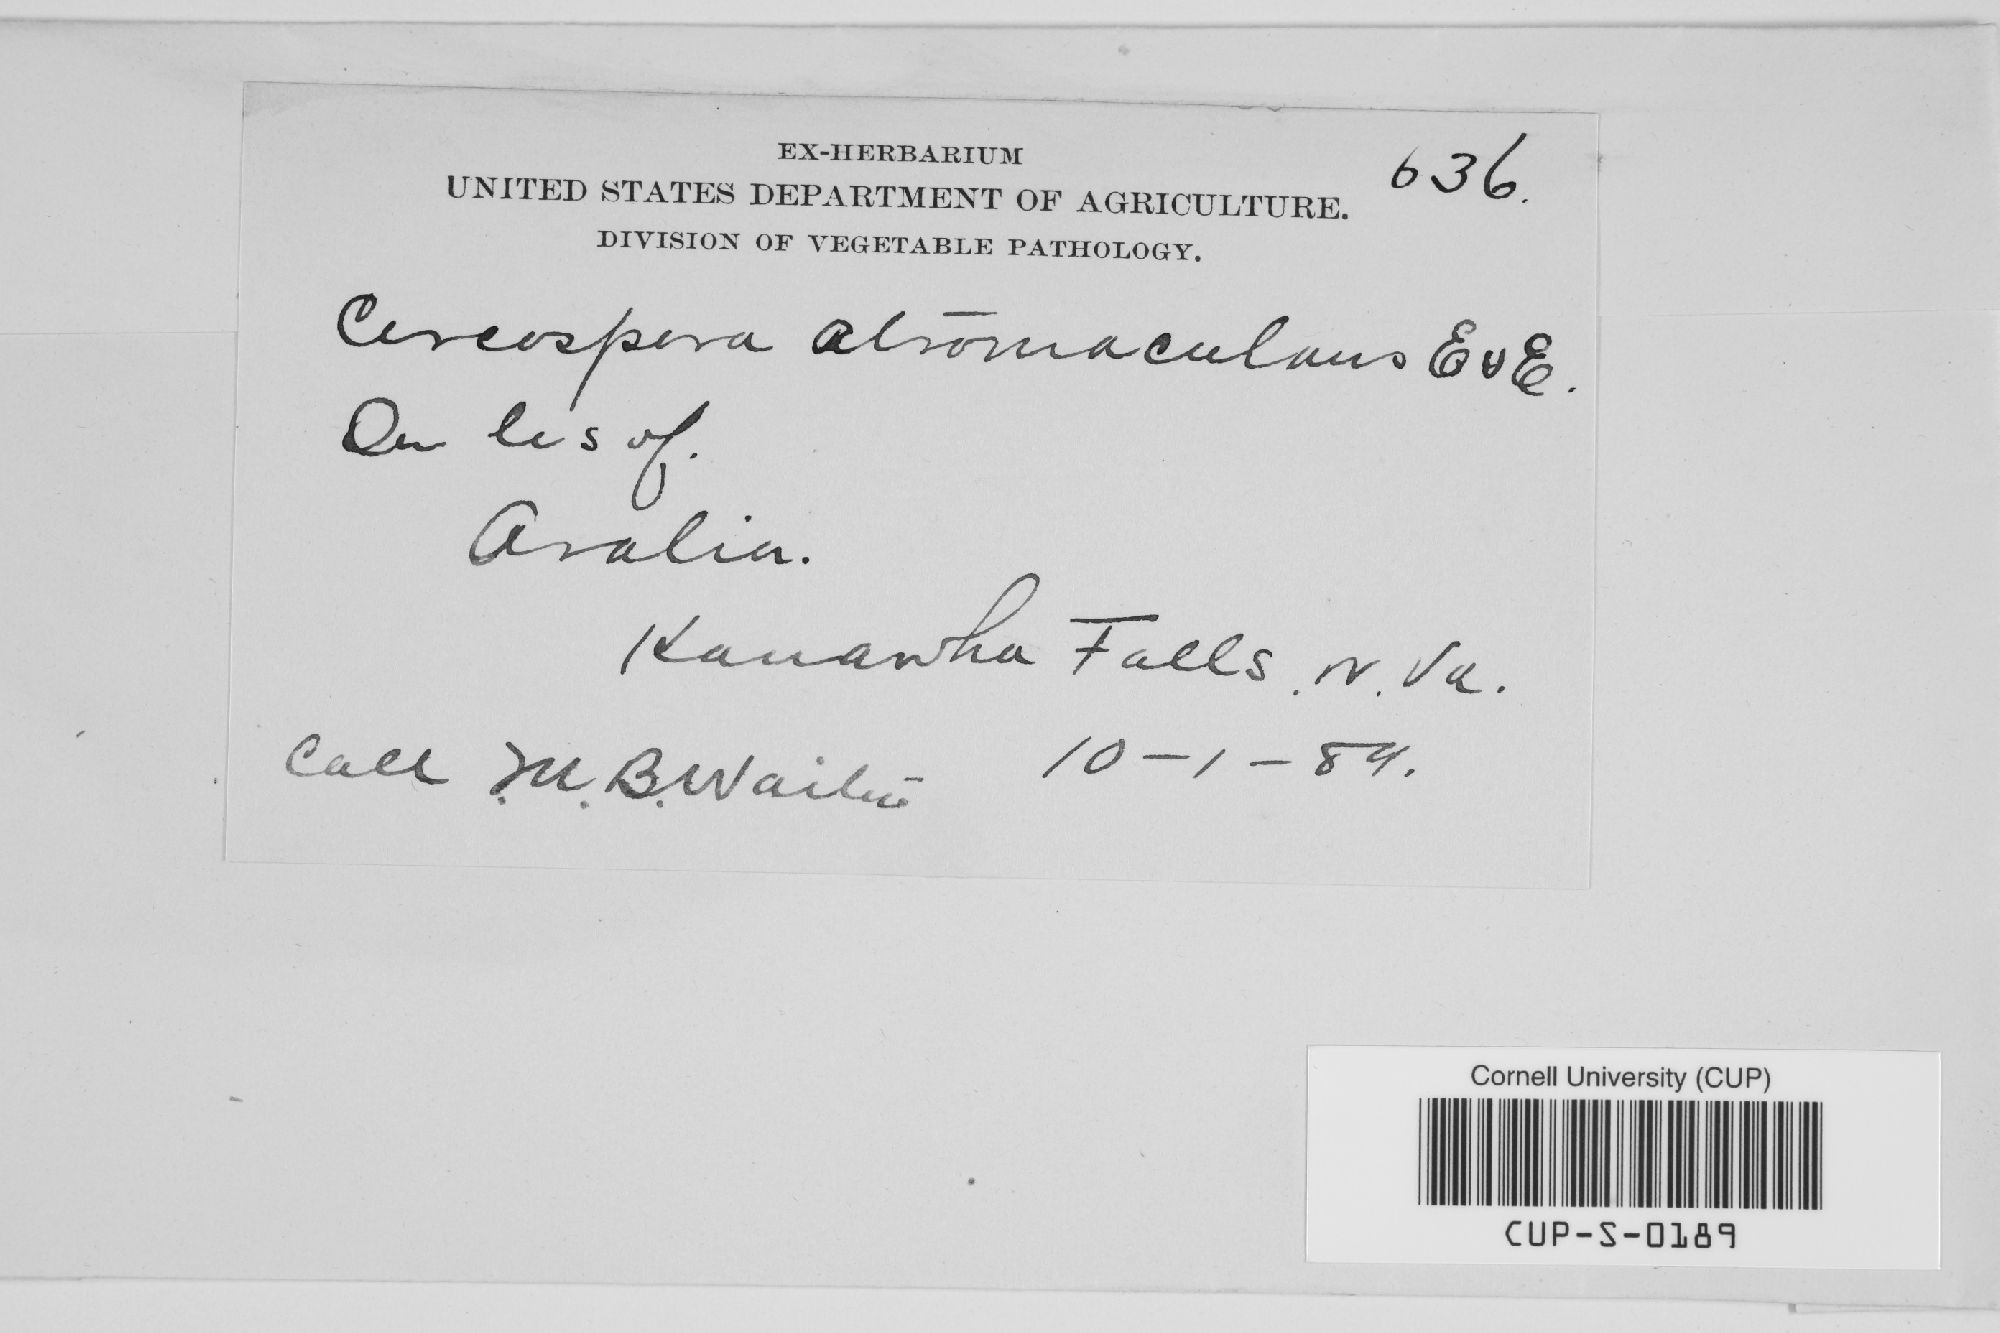 EX-HERBARIUM
636.
UNITED STATES DEPARTMENT OF AGRICULTURE.
DIVISION OF VEGETABLE PATHOLOGY.
Cercospora atromaculans E & E.
On lvs of.
Aralia.
Kanawha Falls. W. Va.
Coll M. B. Waite 10-1-89.
Cornell University (CUP)
CUP-S-0189